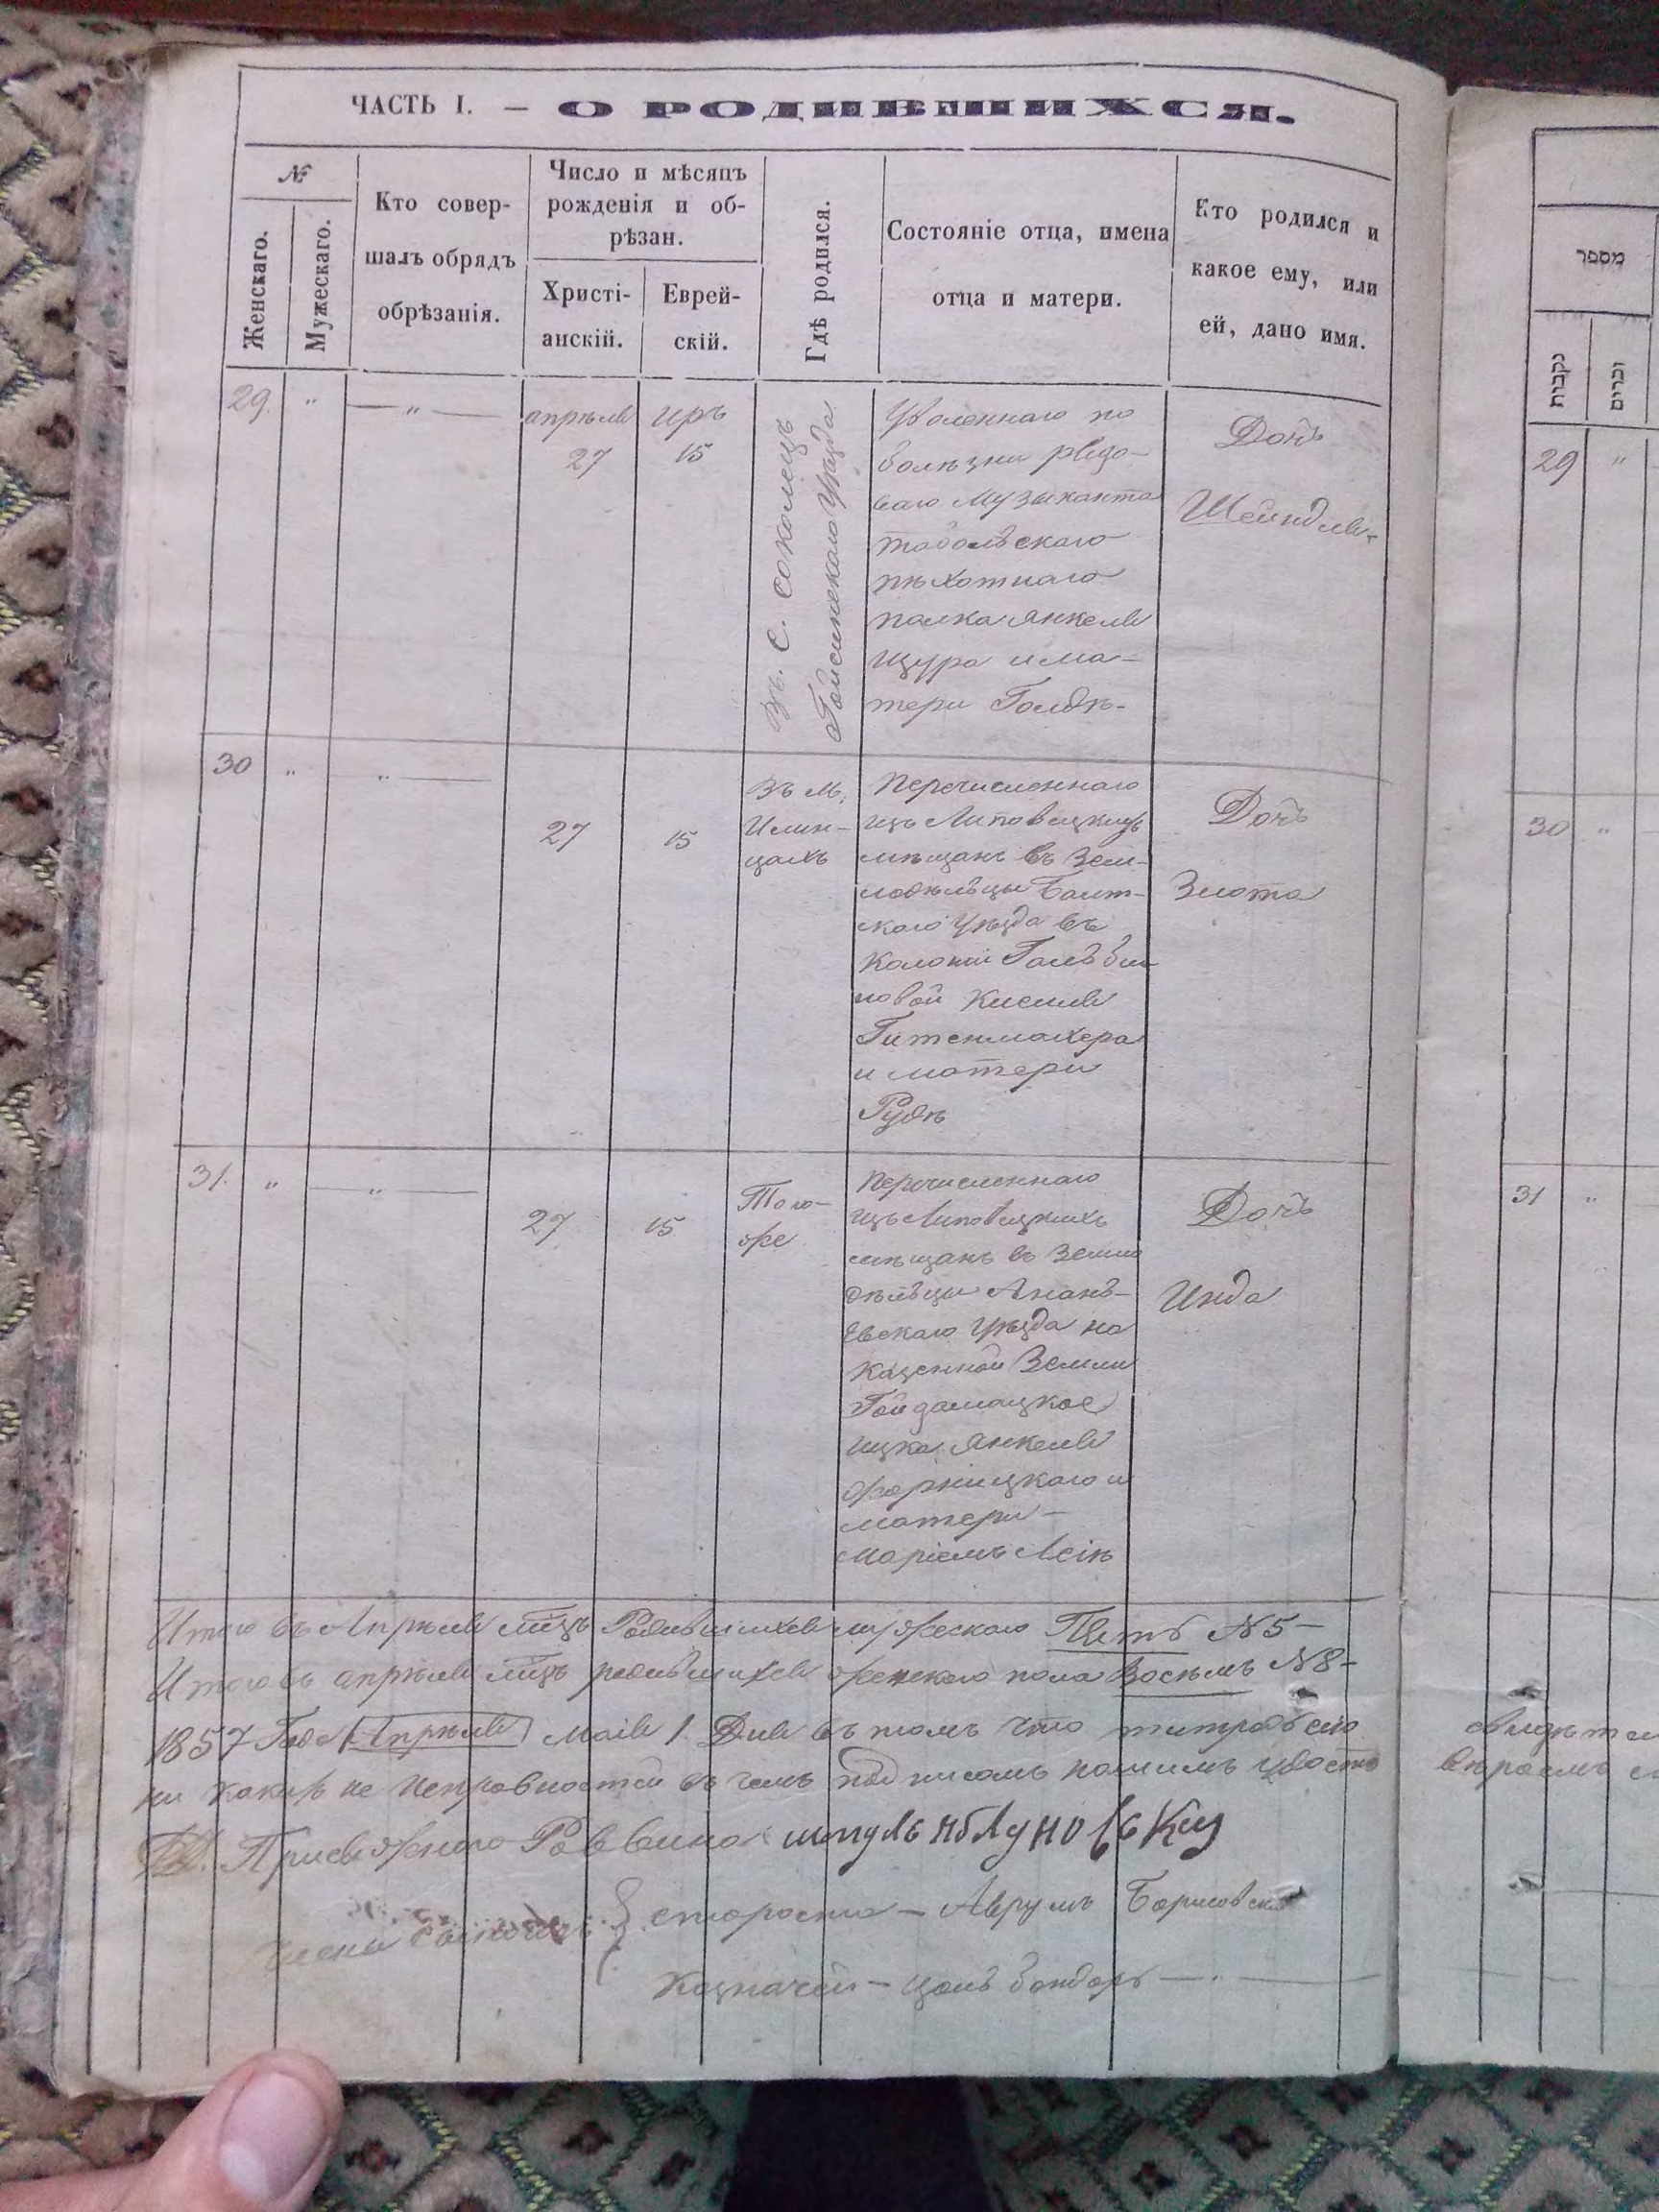 ЧАСТЬ I. — О РОДИВШИХСЯ.
№
Женскаго.
Мужескаго.
Кто совер-
шалъ обрядъ
обрѣзанія.
Число и мѣсяцъ
рожденія и об-
рѣзан.
Христі-
анскій.
Еврей-
скій.
Гдѣ родился.
Состояніе отца, имена
отца и матери.
Кто родился и
какое ему, или
ей, дано имя.
29. " — " —
апрѣля
27
иръ
15
Въ. С. соколецъ
Гайсинскаго Уѣзда
Уволеннаго по
болѣзни рядо-
ваго Музыканта
тобольскаго
пѣхотнаго
полка Янкеля
Щура и ма-
тери Голдѣ-
Дочь
Шейндля-
30 " " —
27
15
Въ м.
Илин-
цахъ
Перечисленнаго
изъ Липовецкихъ
мѣщанъ въ Зем-
лодѣльцы Балт-
скаго Уѣзда въ
Колоніи
Гитенмахера
и матери
Рудѣ
Дочь
Злота
31. " — " —
27
15
Того-
же
Перечисленнаго
изъ Липовецкихъ
мѣщанъ въ Земле
дѣльцы Анань-
евскаго Уѣзда на
Казенной Земли
Гайдамацкое
Ицка Янкеля
и
матери —
Маріемъ Лсіѣ
Дочь
Инда
Итого въ Апрѣлѣ мцѣ Родившихся мужескаго Пять №5 —
Итого въ апрѣлѣ мцѣ родившихся женскаго пола Восемь №8 —
1857 Года Апрѣля Маія 1 Дня въ томъ что титрадь сію
ни какихъ не исправностей въ чемъ подписомъ нашимъ удосто
Раввина шмуль яблуновскій
староста — Аврумъ Борисовскій
Казначей — цаль бондарь —
מספר
נקבות
זכרים
29 "
30 "
31 "